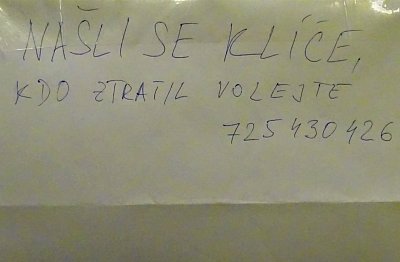 NAŠLI SE KLÍČE,
KDO ZTRATIL VOLEJTE
725 430 426